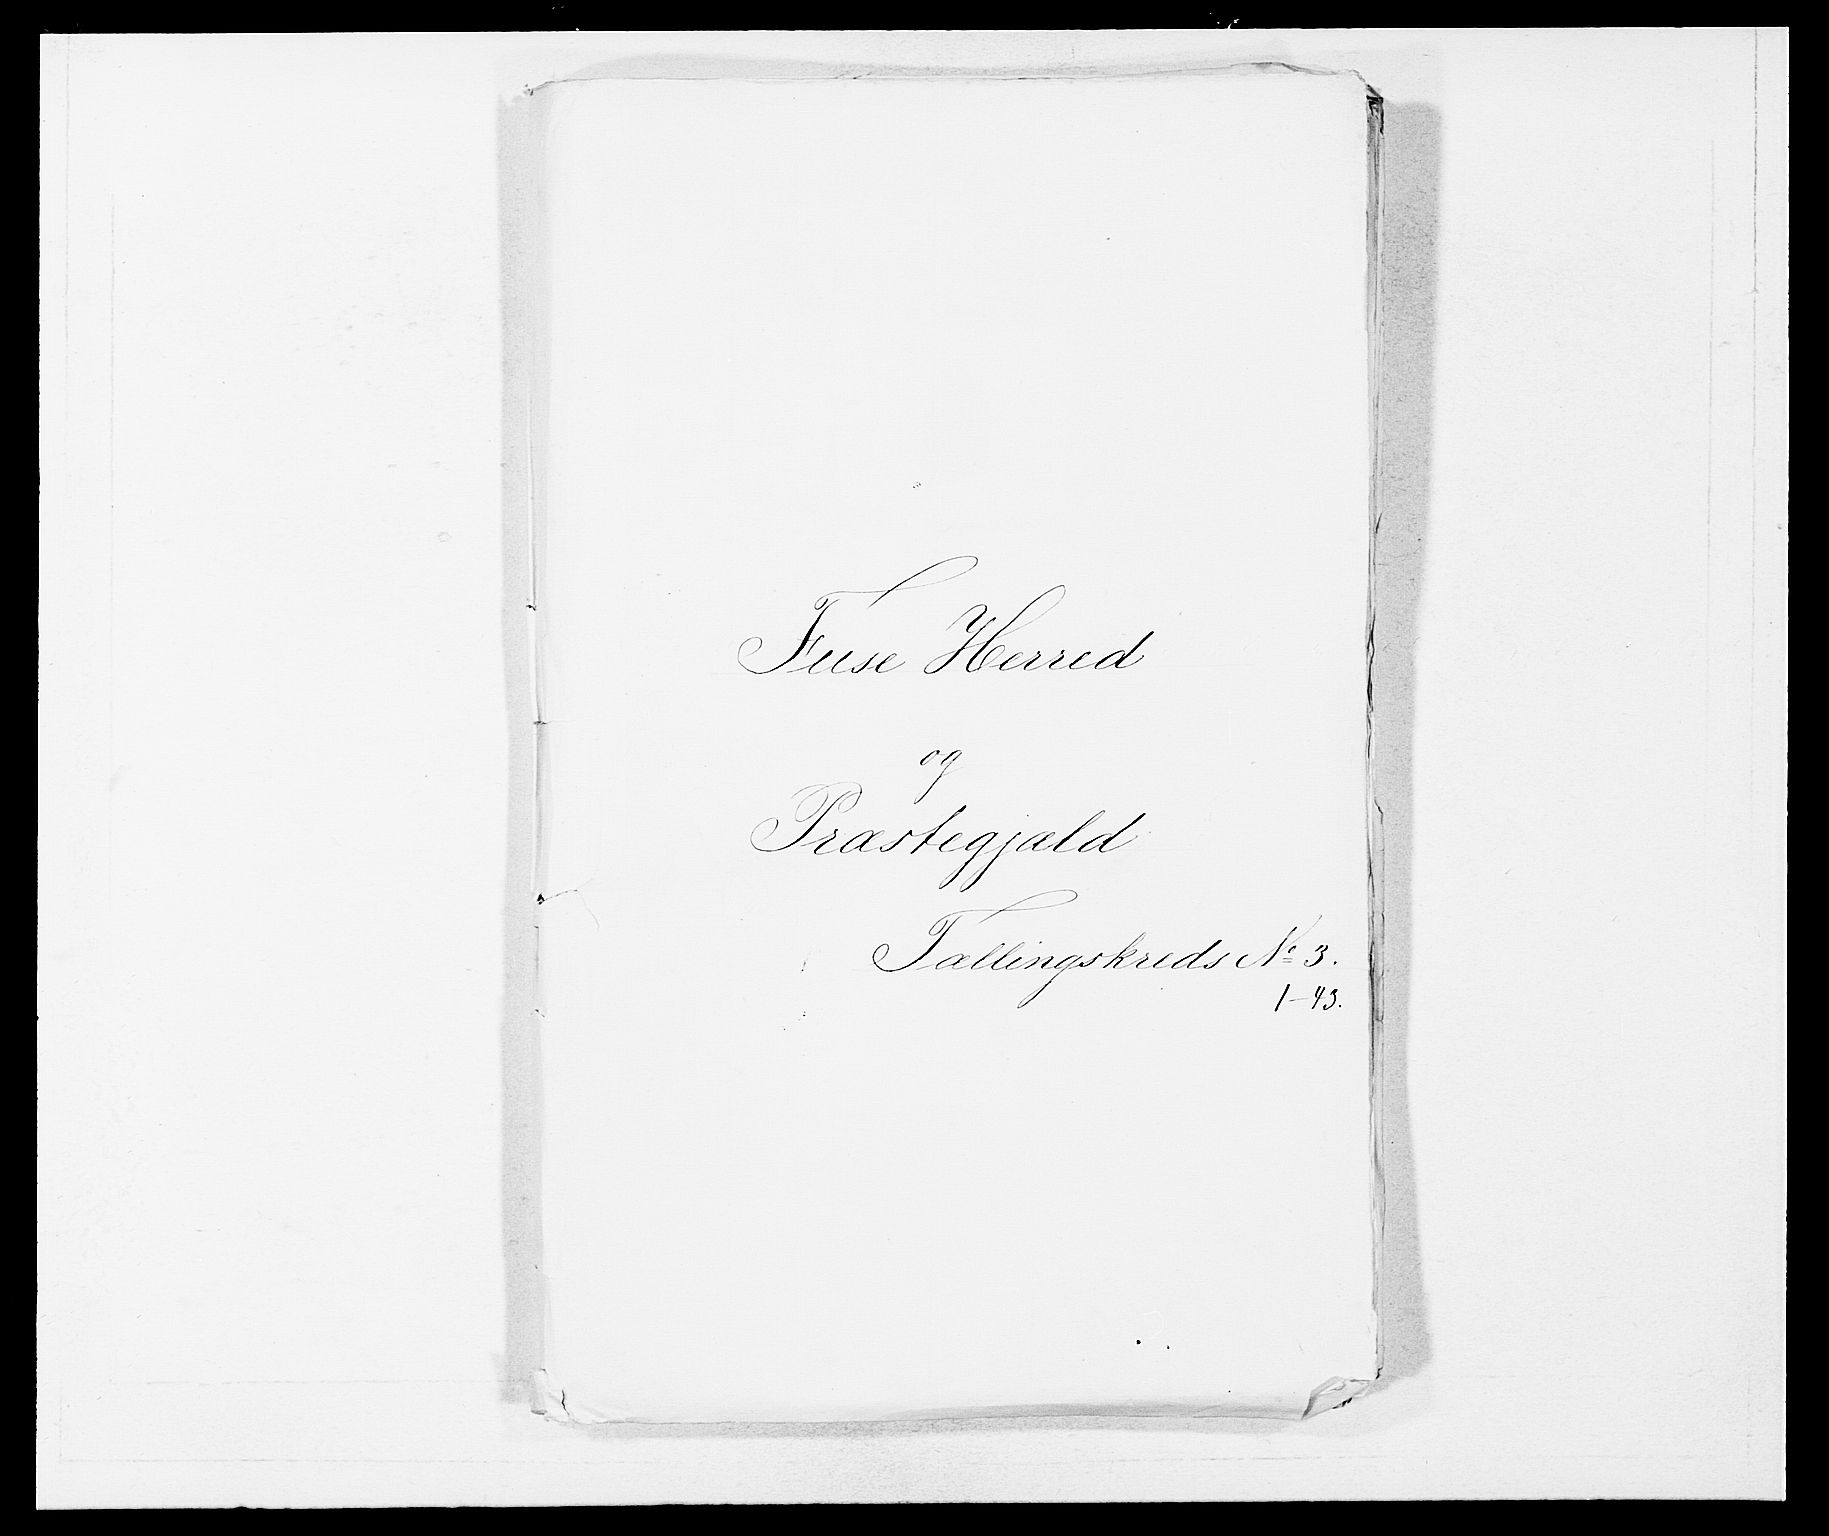 Fuse Herred
og
Præstegjæld
Tællingskreds No 3.
1-43.